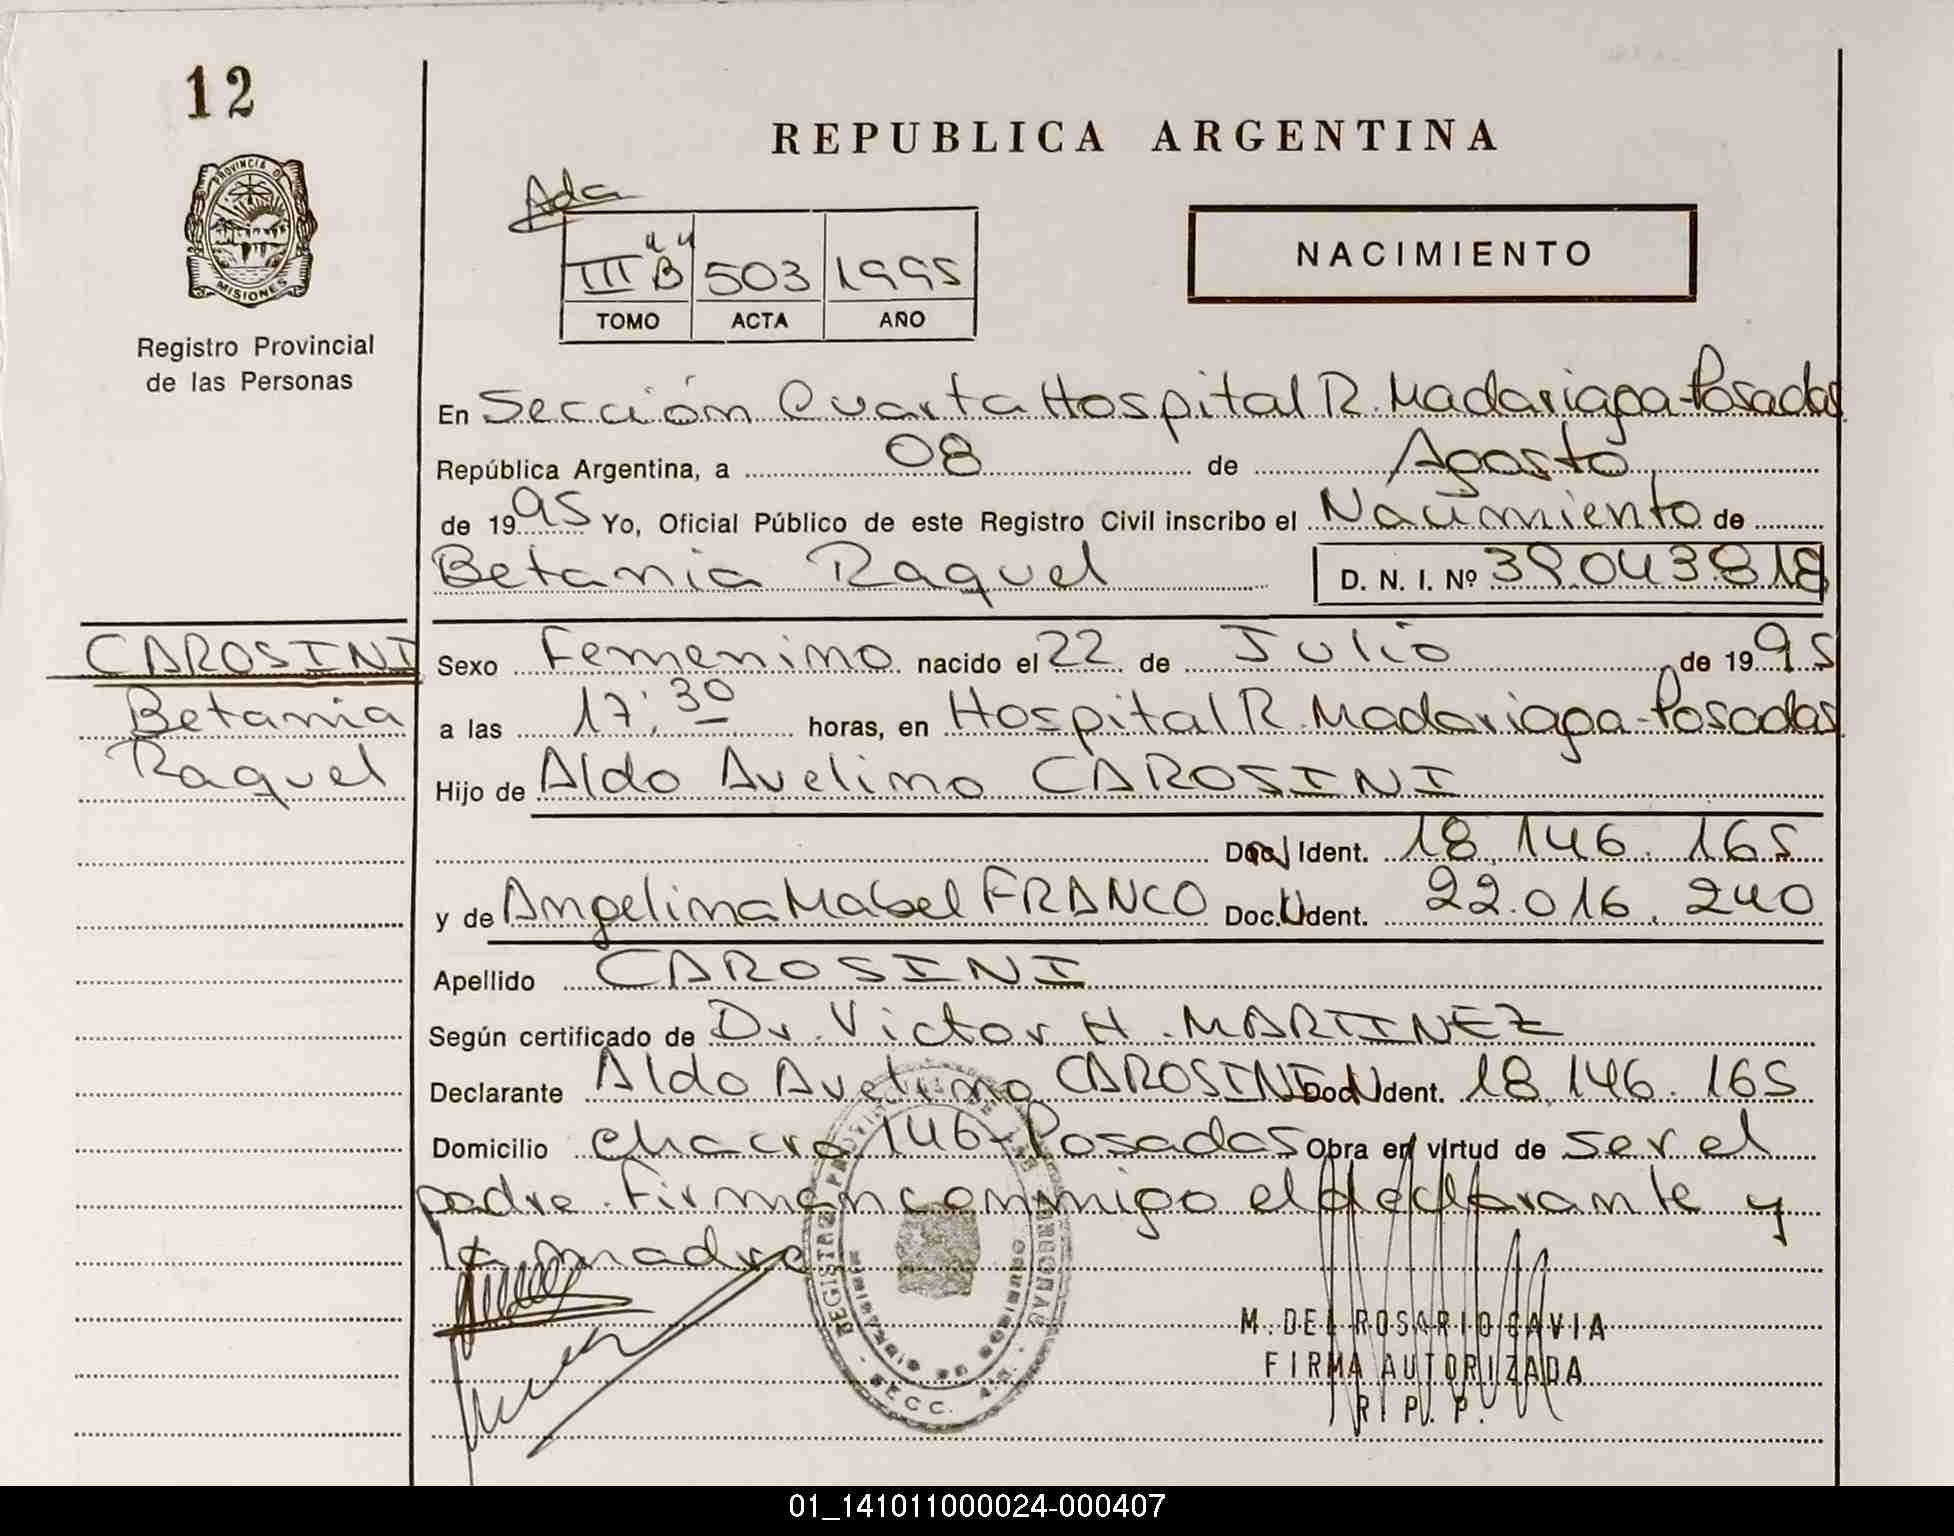 12
PROVINCIA D
MISIONES
Registro Provincial
de las Personas
REPUBLICA ARGENTINA
Ada
III "B" 503 1995
TOMO ACTA AÑO
NACIMIENTO
En Sección Cuarta Hospital R. Madariaga-Posadas
República Argentina, a 08 de Agosto
de 1995 Yo, Oficial Público de este Registro Civil inscribo el Nacimiento de
Betania Raquel D. N. I. Nº 39.043.818
CAROSINI
Betania
Raquel
Sexo Femenino nacido el 22 de Julio de 1995
a las 17:30 horas, en Hospital R. Madariaga-Posadas
Hijo de Aldo Avelino CAROSINI
Ident. 18.146.165
y de Angelina Mabel FRANCO Doc. Ident. 22.016.240
Apellido CAROSINI
Según certificado de Dr. Victor H. MARTINEZ
Declarante Aldo Avelino CAROSINI Doc. Ident. 18.146.165
Domicilio chacra 146-Posadas Obra en virtud de ser el
padre. Firman conmigo el declarante y
la madre
SECC.
M. DEL ROSARIO CAVIA
FIRMA AUTORIZADA
R. P. P.
01_141011000024-000407